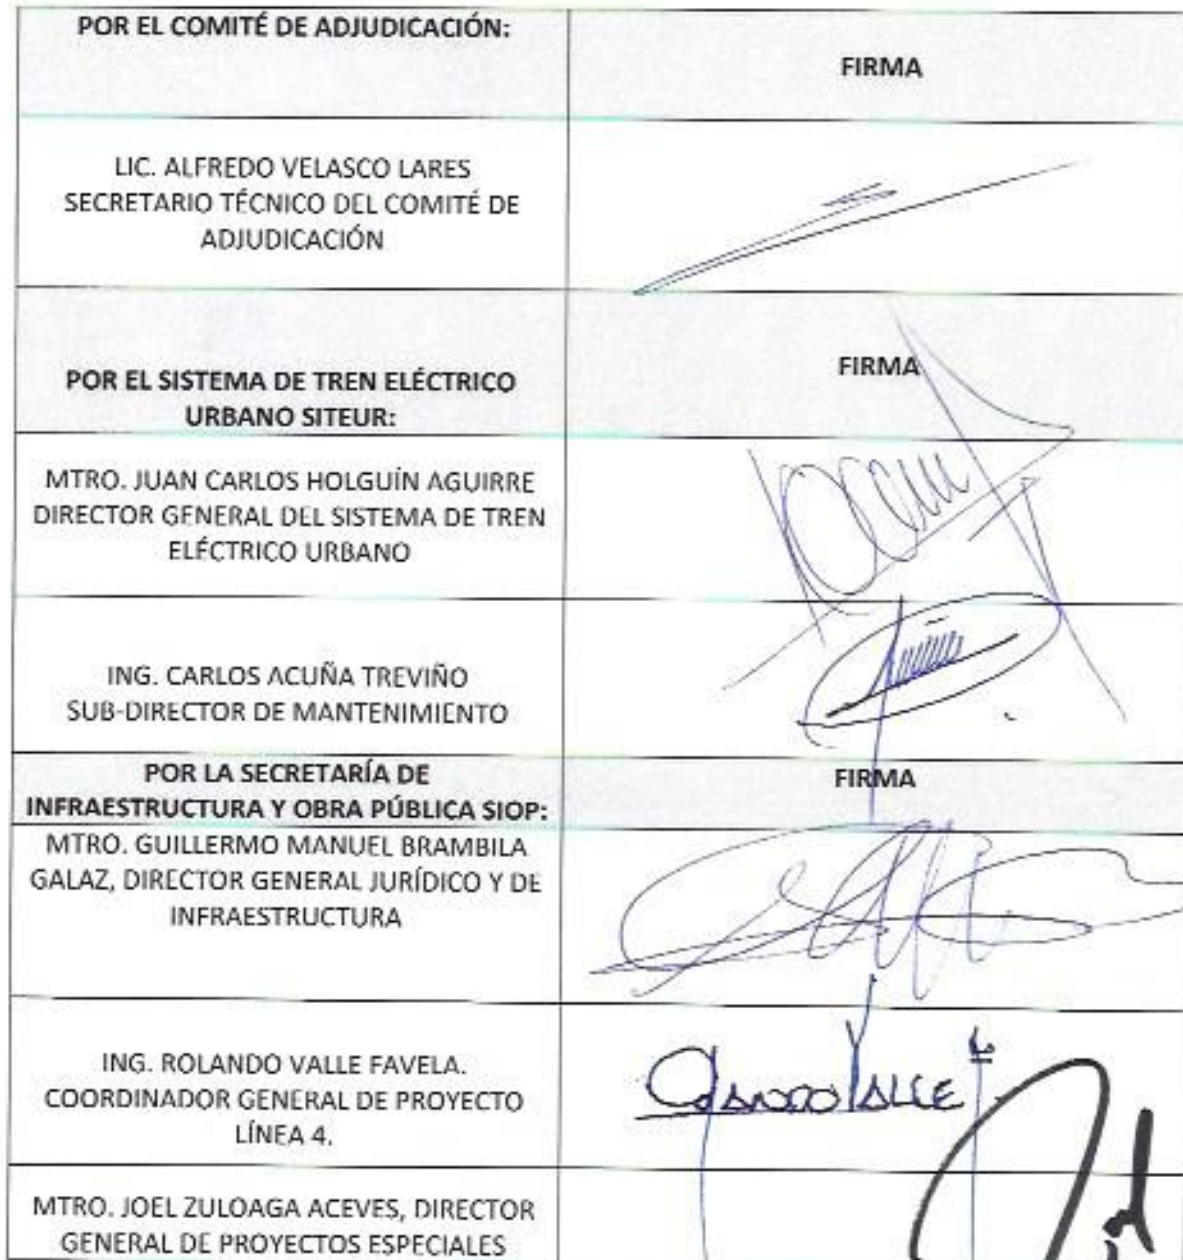 POR EL COMITÉ DE ADJUDICACIÓN:
FIRMA
LIC. ALFREDO VELASCO LARES
SECRETARIO TÉCNICO DEL COMITÉ DE
ADJUDICACIÓN
POR EL SISTEMA DE TREN ELÉCTRICO
URBANO SITEUR:
FIRMA
MTRO. JUAN CARLOS HOLGUÍN AGUIRRE
DIRECTOR GENERAL DEL SISTEMA DE TREN
ELÉCTRICO URBANO
ING. CARLOS ACUÑA TREVIÑO
SUB-DIRECTOR DE MANTENIMIENTO
POR LA SECRETARÍA DE
INFRAESTRUCTURA Y OBRA PÚBLICA SIOP:
FIRMA
MTRO. GUILLERMO MANUEL BRAMBILA
GALAZ, DIRECTOR GENERAL JURÍDICO Y DE
INFRAESTRUCTURA
ING. ROLANDO VALLE FAVELA.
COORDINADOR GENERAL DE PROYECTO
LÍNEA 4.
VALLE
MTRO. JOEL ZULOAGA ACEVES, DIRECTOR
GENERAL DE PROYECTOS ESPECIALES